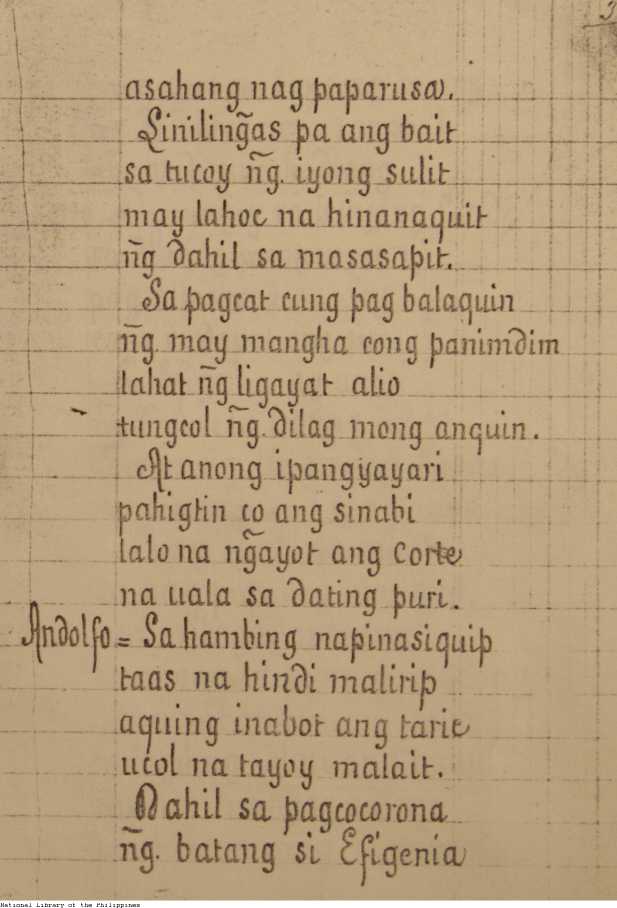 3
asahang nag paparusa.
Linilin͠gas pa ang bait
sa tucoy n͠g. iyong sulit
may lahoc na hinanaquit
n͠g dahil sa masasapit.
Sa pagcat cung pag balaquin
n͠g. may mangha cong panimdim
lahat n͠g ligayat alio
tungcol n͠g. dilag mong anquin.
At anong ipangyayari
pahigtin co ang sinabi
lalo na n͠gayot ang Corte
na uala sa dating puri.
Andolfo = Sa hambing napinasiquip
taas na hindi malirip
aquing inabot ang taric
ucol na tayoy malait.
Dahil sa pagcocorona
n͠g. batang si Efigenia
National Library of the Philippines